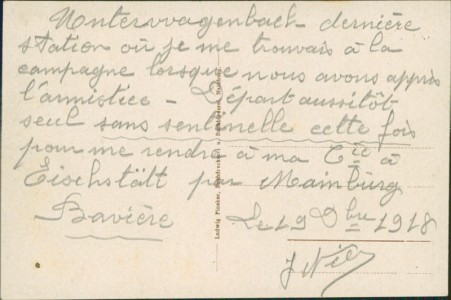 Unterwagenbach dernière
station où je me trouvais à la
campagne lorsque nous avons appris
l'armistice - Départ aussitôt
seul sans sentinelle cette fois
pour me rendre à ma Cie à
Eischstält par Mainbürg
Bavière
Le 19 Dbre 1918
Ludwig Fischer, Buchdruckerei u.